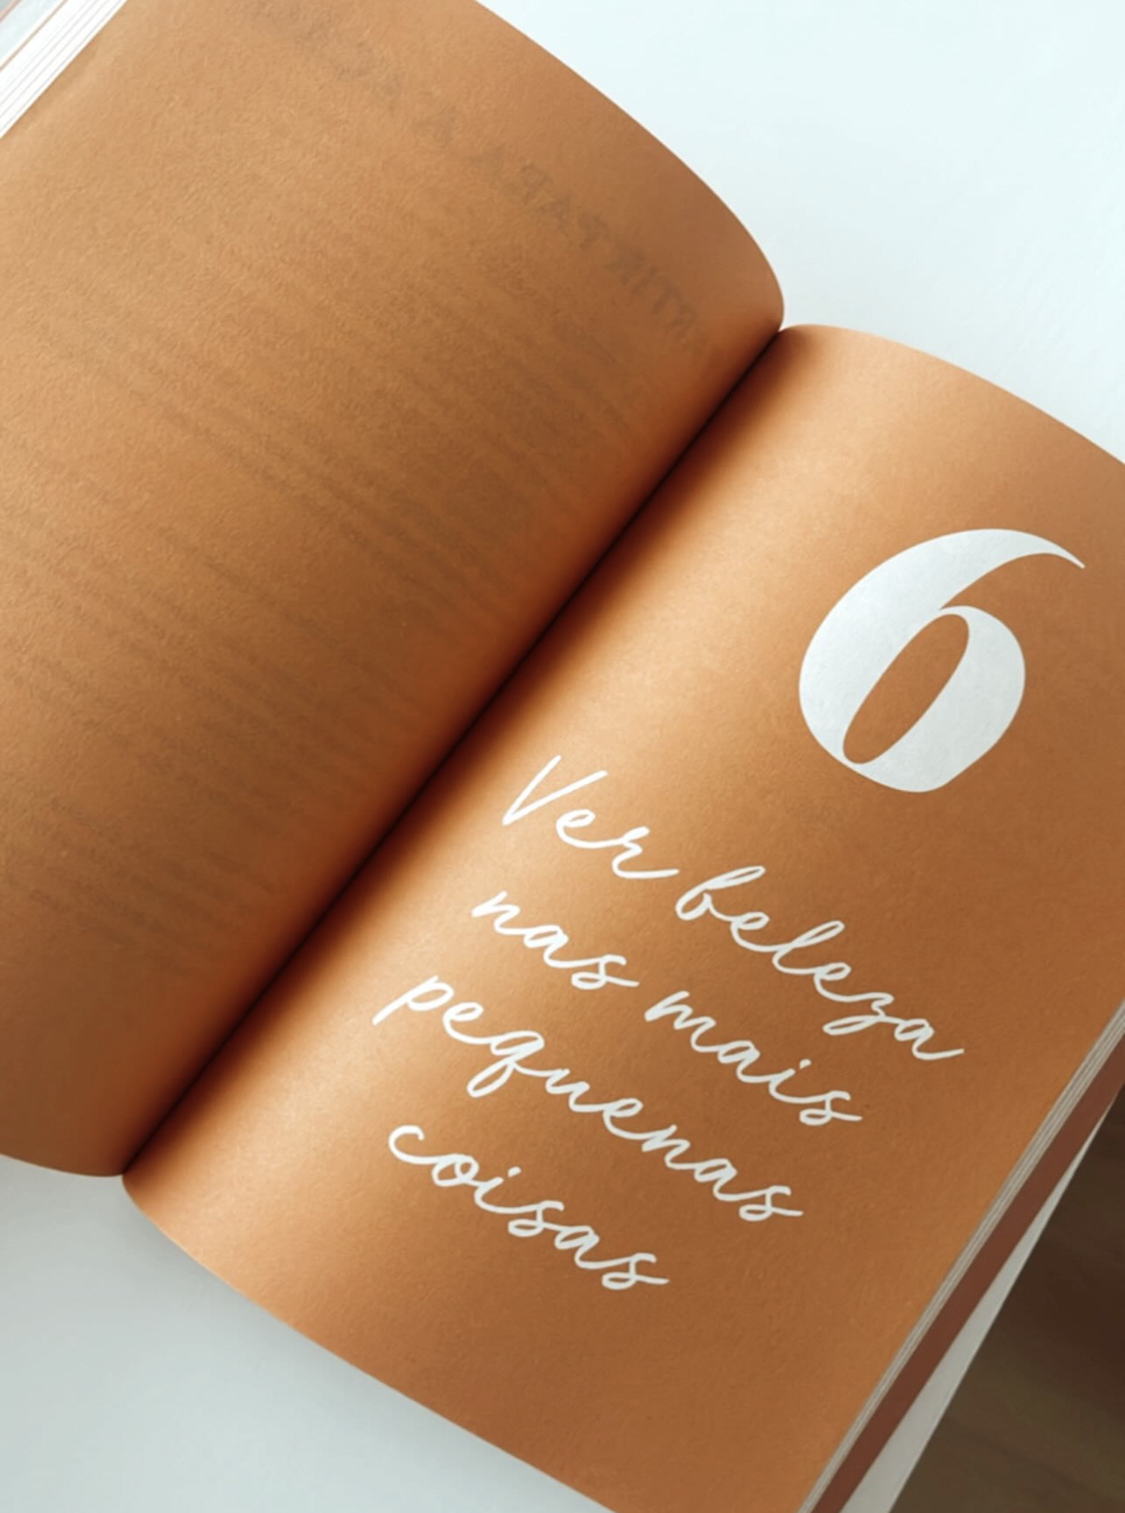 6
Ver beleza
nas mais
pequenas
coisas